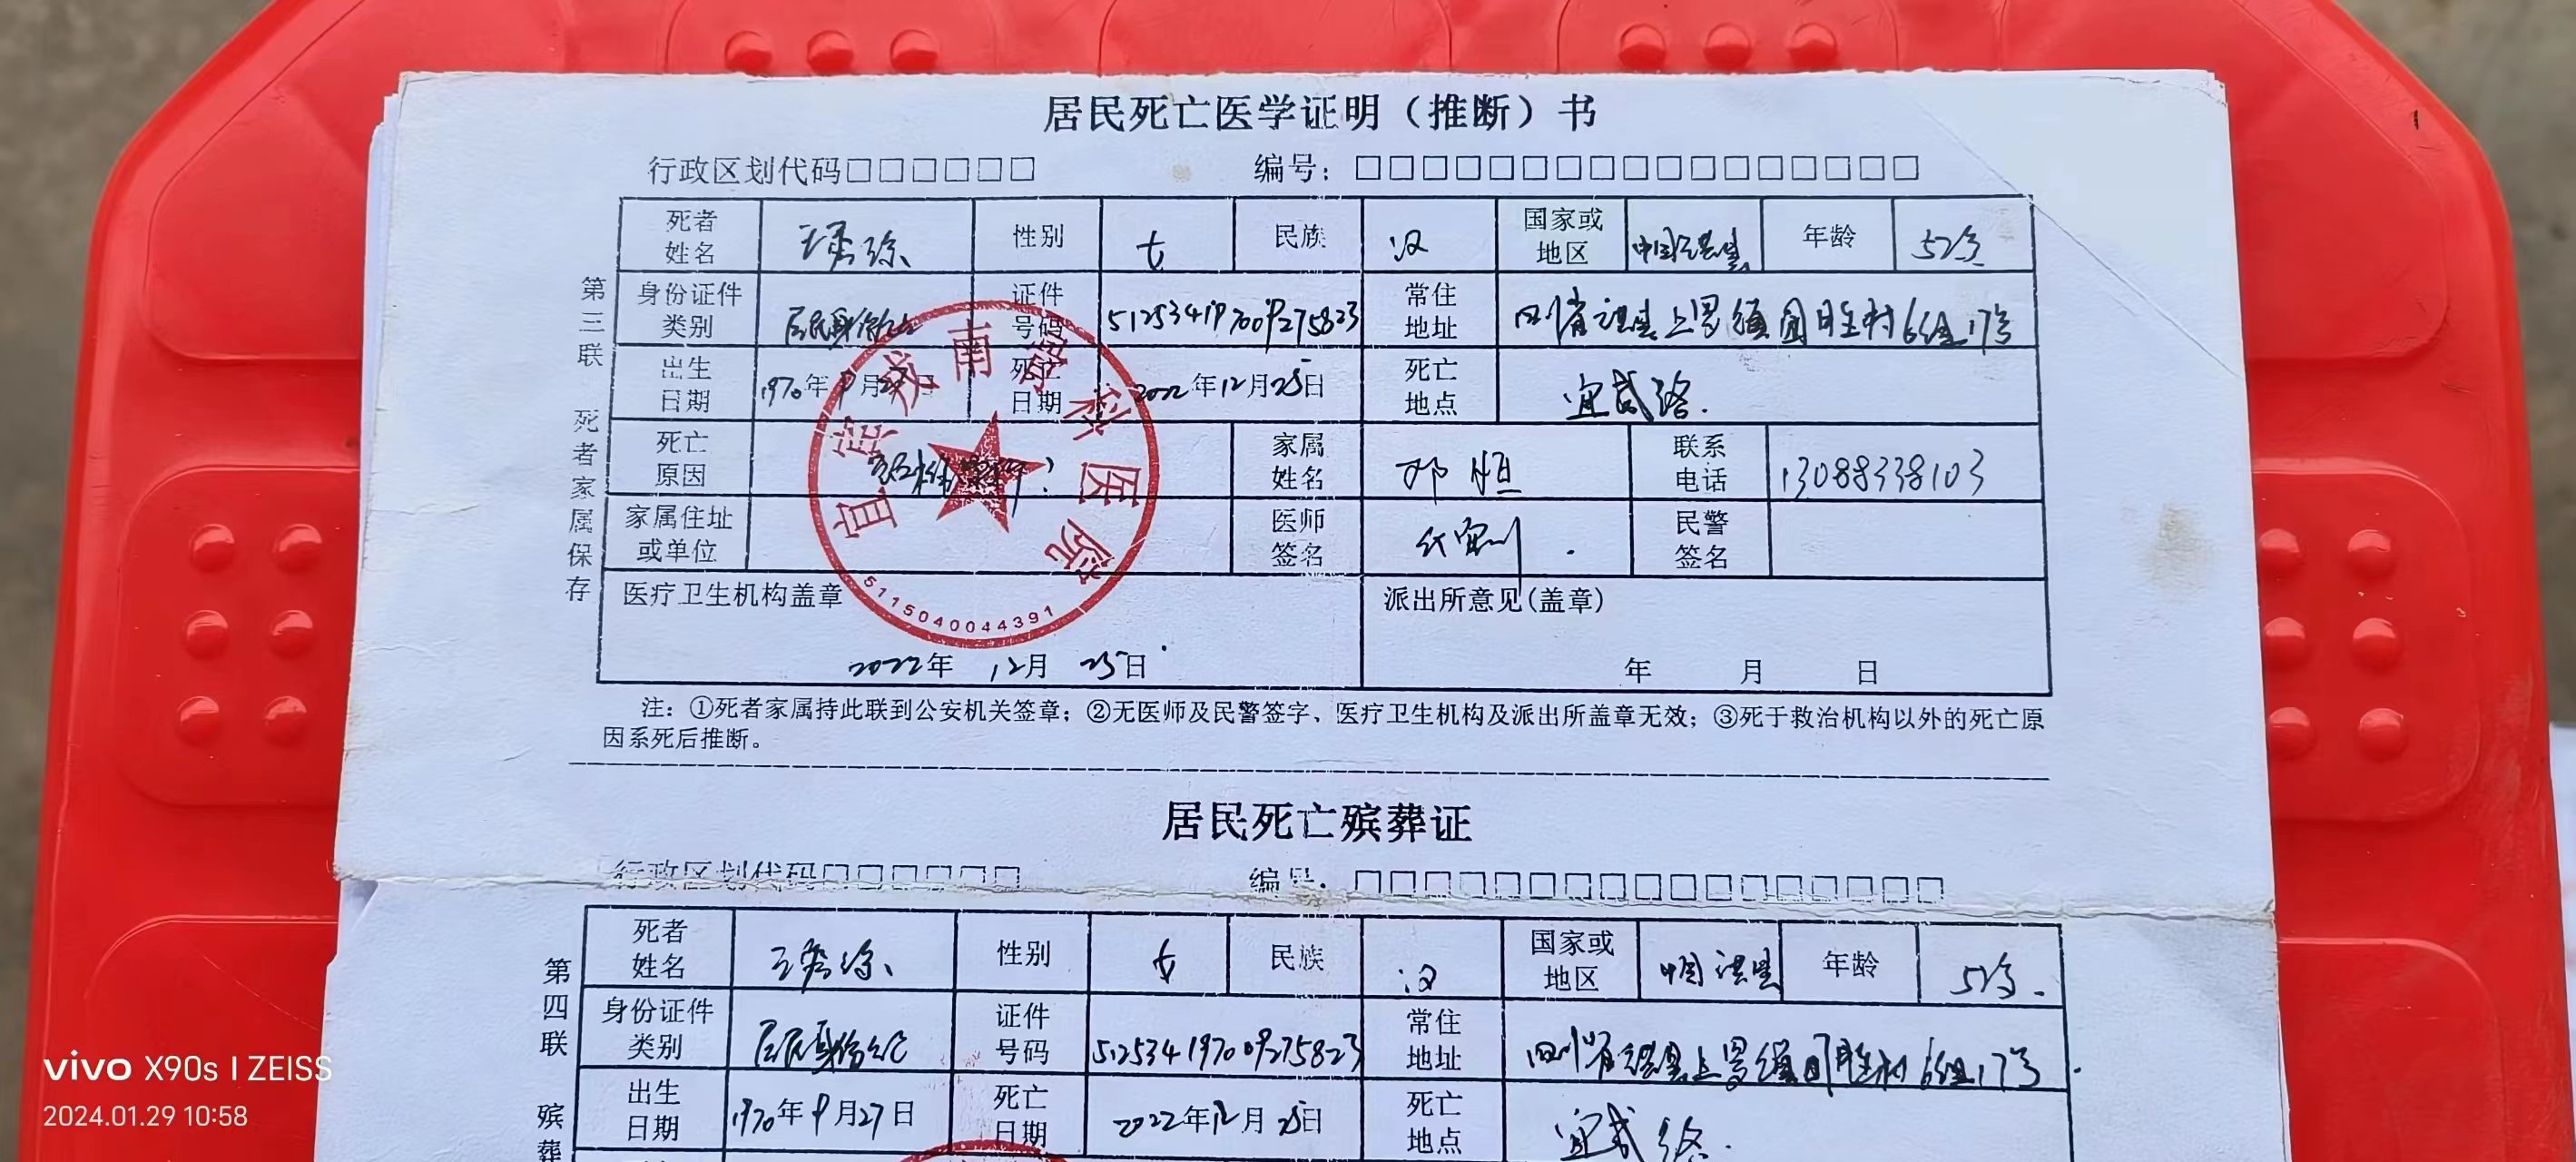 居民死亡医学证明（推断）书
行政区划代码□□□□□□ 编号：□□□□□□□□□□□□□□□□□
第三联 死者家属保存
死者姓名 王秀琼 性别 女 民族 汉 国家或地区 中国珙县 年龄 52岁
身份证件类别 居民身份证 证件号码 512534197009275823 常住地址 四川省珙县上罗镇 胜村6组17号
出生日期 1970年9月27日 死亡日期 2022年12月25日 死亡地点 宜威路.
死亡原因 家属姓名 邓恒 联系电话 13088338103
家属住址或单位 医师签名 民警签名
宜宾戎南骨科医院
5115040044391
医疗卫生机构盖章 派出所意见(盖章)
2022年 12月 25日 年 月 日
注：①死者家属持此联到公安机关签章；②无医师及民警签字、医疗卫生机构及派出所盖章无效；③死于救治机构以外的死亡原
因系死后推断。
居民死亡殡葬证
行政区划代码□□□□□□ 编号：□□□□□□□□□□□□□□□□□
第四联 殡葬
死者姓名 王秀琼 性别 女 民族 汉 国家或地区 中国珙县 年龄 52岁.
身份证件类别 居民身份证 证件号码 512534197009275823 常住地址 四川省珙县上罗镇 胜村6组17号.
出生日期 1970年9月27日 死亡日期 2022年12月25日 死亡地点 宜威路.
vivo X90s | ZEISS
2024.01.29 10:58